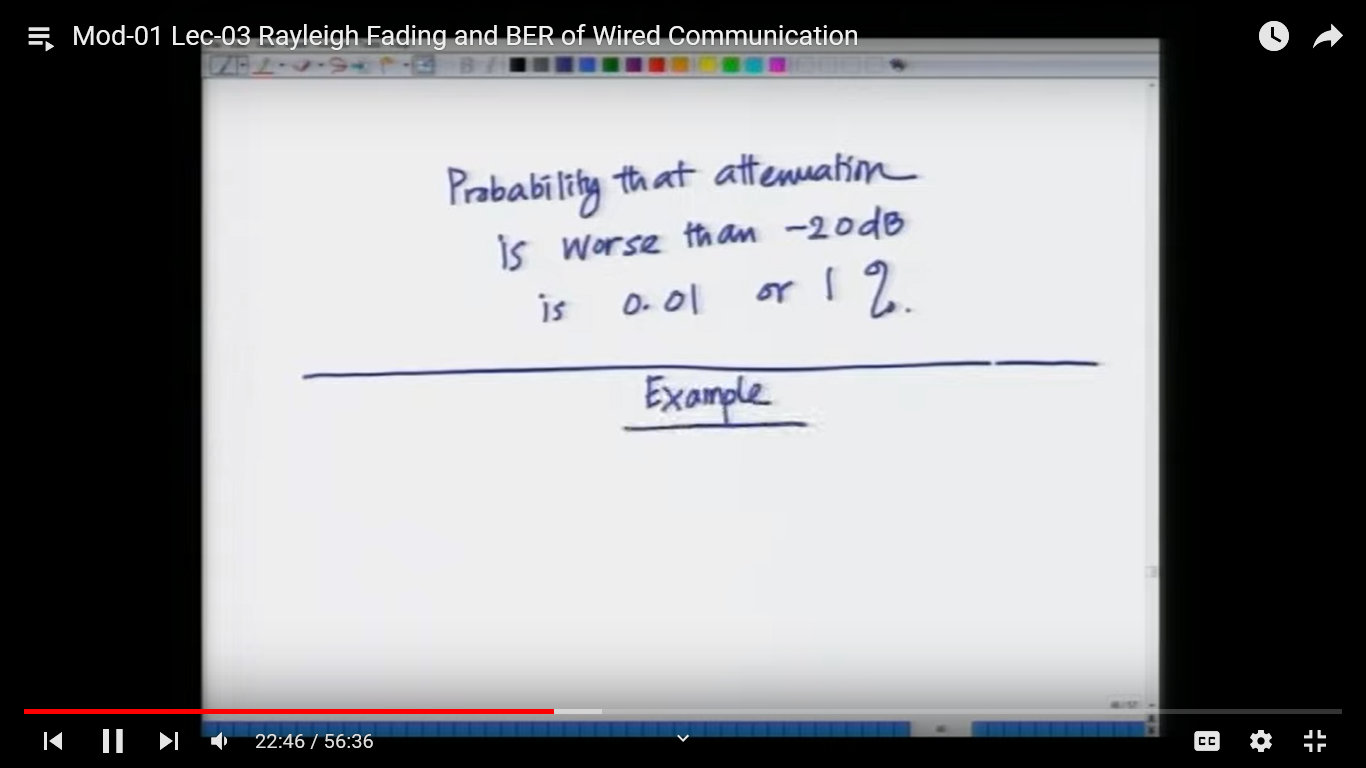 Mod-01 Lec-03 Rayleigh Fading and BER of Wired Communication
Probability that attenuation
is worse than -20dB
is 0.01 or 1 %.
Example
22:46 / 56:36
CC